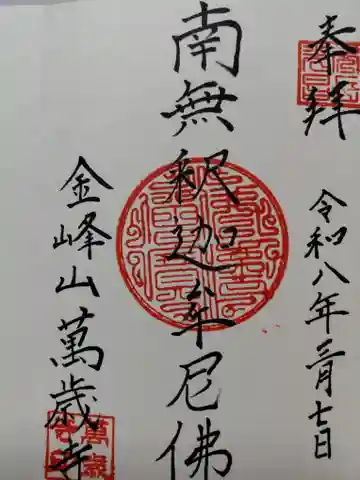 奉拜
令和八年三月七日
南無釈迦牟尼佛
金峰山萬歳寺